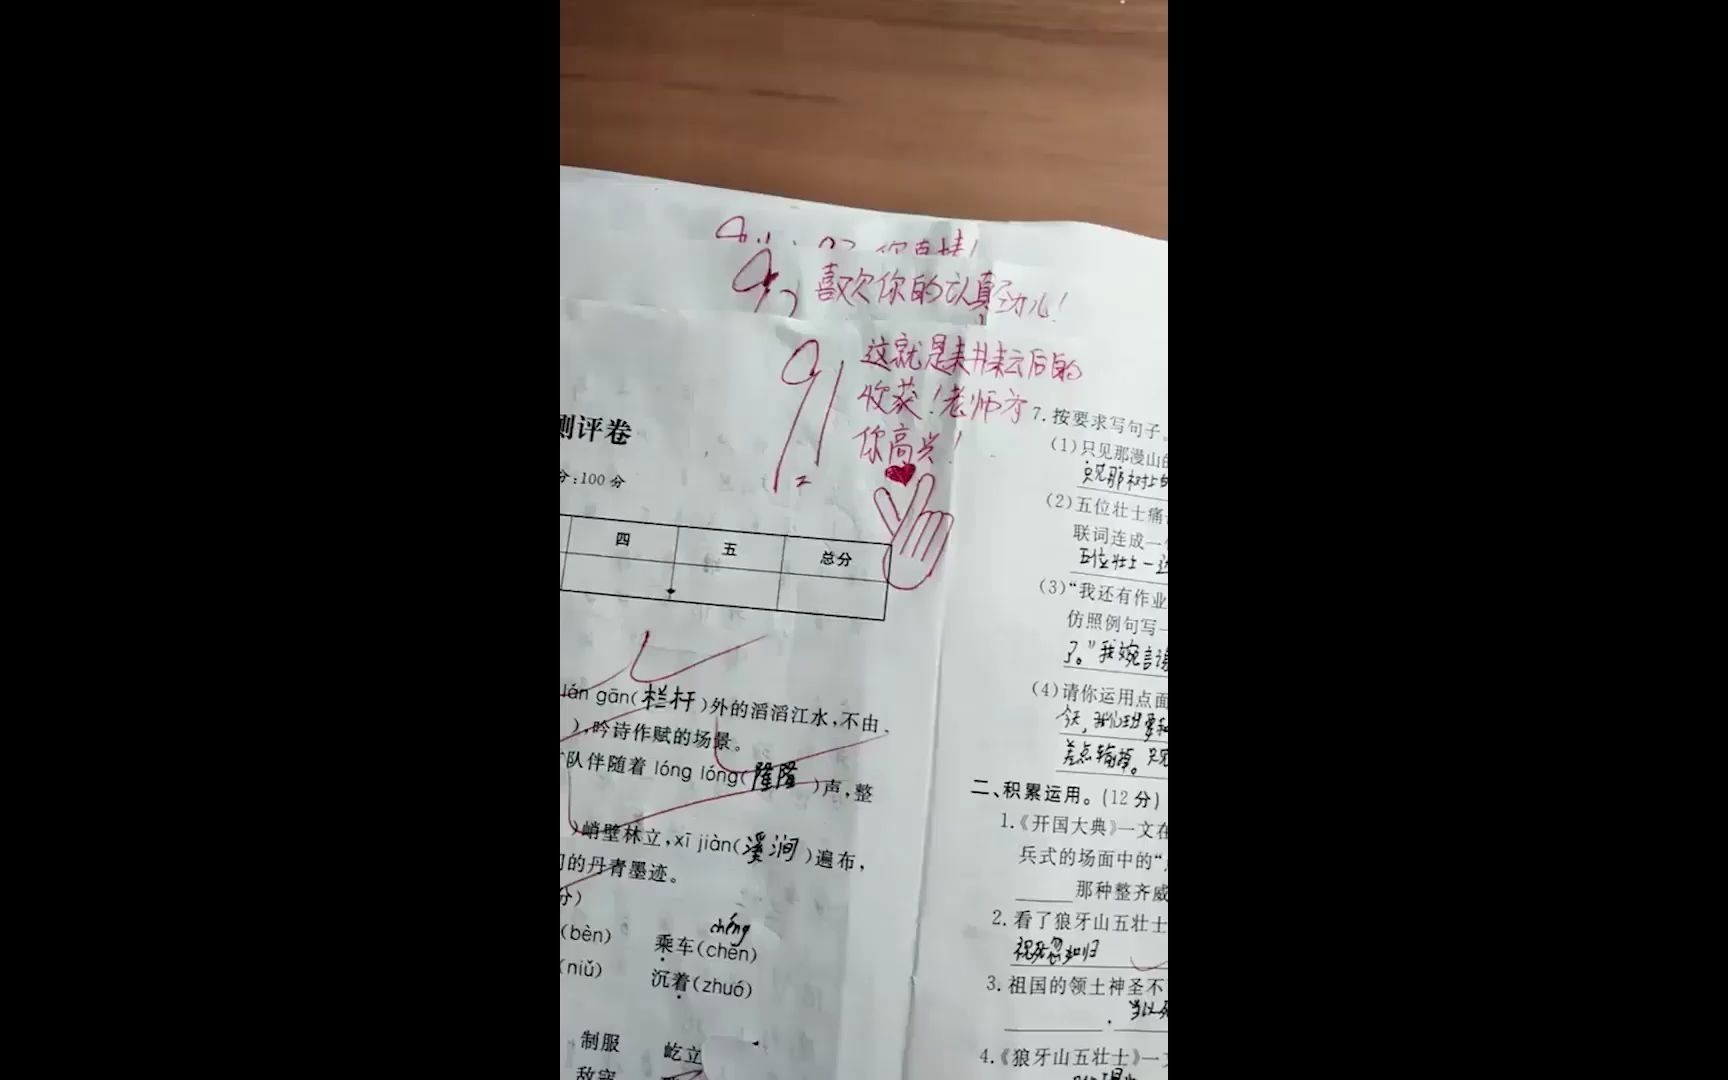 喜欢你的认真劲儿！
91
这就是耕耘后的
收获！老师为
你高兴！
测评卷
分：100 分
四 五 总分
lán gān（栏杆）外的滔滔江水，不由
），吟诗作赋的场景。
队伴随着 lóng lóng（隆隆）声，整
）峭壁林立，xī jiàn（溪涧）遍布，
的丹青墨迹。
分）
chéng
（bèn） 乘车（chěn）
（niǔ） 沉着（zhuó）
制服 屹立
7. 按要求写句子。
（1）只见那漫山的
只见那树上
（2）五位壮士痛
联词连成一
五位壮士一边
（3）“我还有作业
仿照例句写一
了。”我婉言谢
（4）请你运用点面
今天，我们班要和
差点输掉。只见
二、积累运用。（12 分）
1.《开国大典》一文在
兵式的场面中的“
那种整齐威
2. 看了狼牙山五壮士
视死忽如归
3. 祖国的领土神圣不
4.《狼牙山五壮士》一